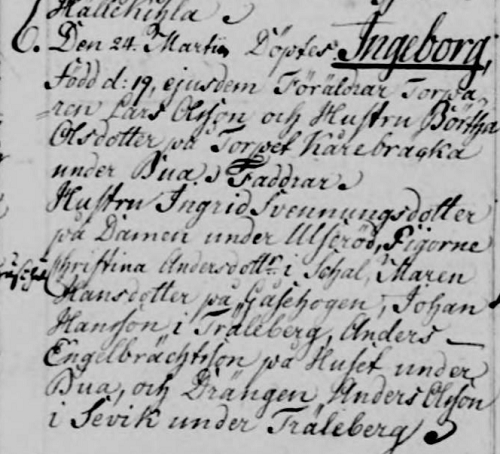 Hällekihla
6. Den 24. Martii, Döptes Ingeborg,
född d: 19, ejusdem Föräldrar Torpa
ren Lars Olsson och Hustru Börtha
Olsdotter på Torpet Kårebracka
under Bua. Faddrar
Hustru Ingrid Svennungsdotter
på Damen under Ulseröd, Pigorne
Christina Andersdottr. i Schal, Maren
Hansdotter på Gåsehogen, Johan
Hansson i Träleberg, Anders
Engelbrächtsson på Huset under
Bua, och Drängen Anders Olsson
i Sevik under Träleberg